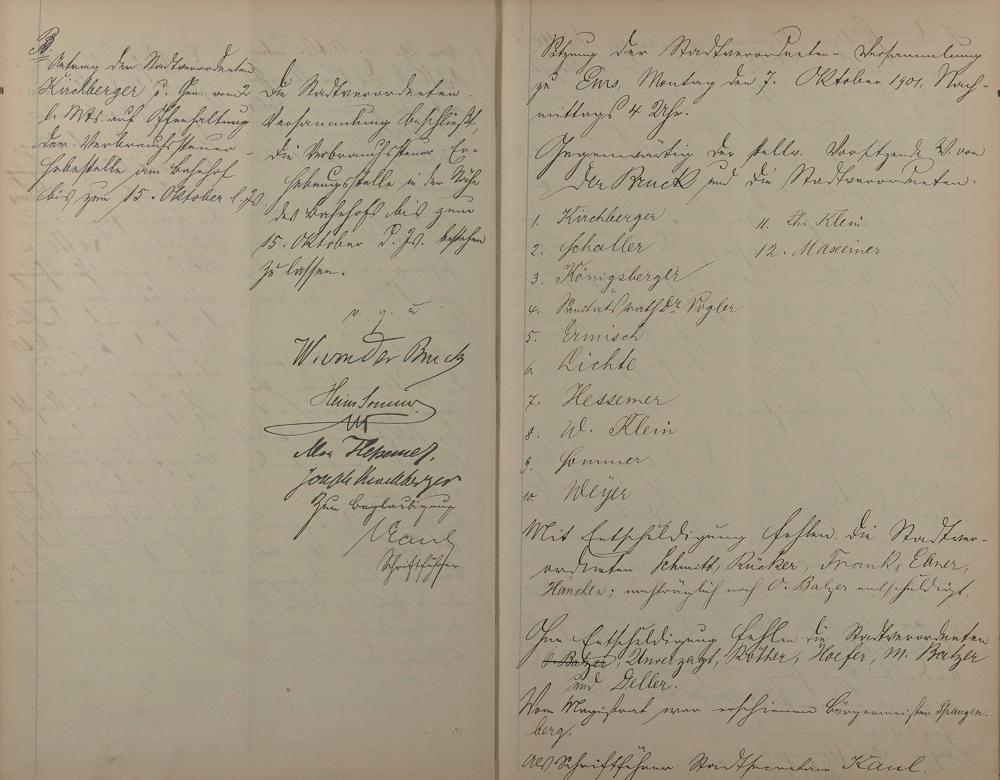 B.
Antrag der Stadtverordneten
Kirchberger u. Gen. vom 2
l. Mts. auf Offenhaltung
der Verbrauchssteuer-
hebestelle am Bahnhof
bis zum 15. Oktober l. Js.
Die Stadtverordneten-
Versammlung beschließt,
die Verbrauchssteuer-Er-
hebungsstelle in der Nähe
des Bahnhofs bis zum
15. Oktober d. Js. bestehen
zu lassen.
v. g. u.
W. von der Bruck
Hein Sommer
Hessemer.
Joseph Kirchberger
Zur Beglaubigung
Kaul
Schriftführer.
Sitzung der Stadtverordneten-Versammlung
zu Ems, Montag den 7. Oktober 1901, Nach-
mittags 4 Uhr.
Gegenwärtig der stellv. Vorsitzende W. von
der Bruck und die Stadtverordneten.
1. Kirchberger
2. Schaller
3. Königsberger
4. Sanitätsrath Dr. Vogler
5. Ermisch
6. Lichte
7. Hessemer
8. W. Klein
9. Sommer
10. Weyer
11. Chr. Klein
12. Masseiner
Mit Entschuldigung fehlen die Stadtver-
ordneten Schmitt, Rücker, Frank, Ebner,
Hänchen; nachträglich noch O. Balzer entschuldigt.
Ohne Entschuldigung fehlen die Stadtverordneten
O. Balzer, Unverzagt, Rother, Hoefer, M. Balzer
und Geller.
Vom Magistrat war erschienen Bürgermeister Spangen-
berg.
Als Schriftführer Stadtsecretair Kaul